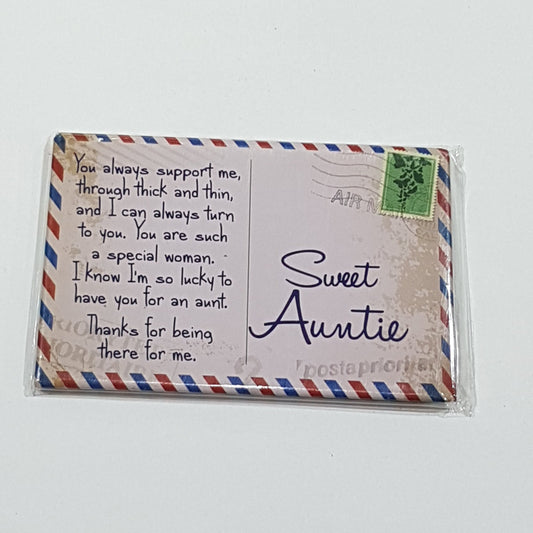 You always support me,
through thick and thin,
and I can always turn
to you. You are such
a special woman.
I know I'm so lucky to
have you for an aunt.
Thanks for being
there for me.
AIR
Sweet
Auntie
postapriorita